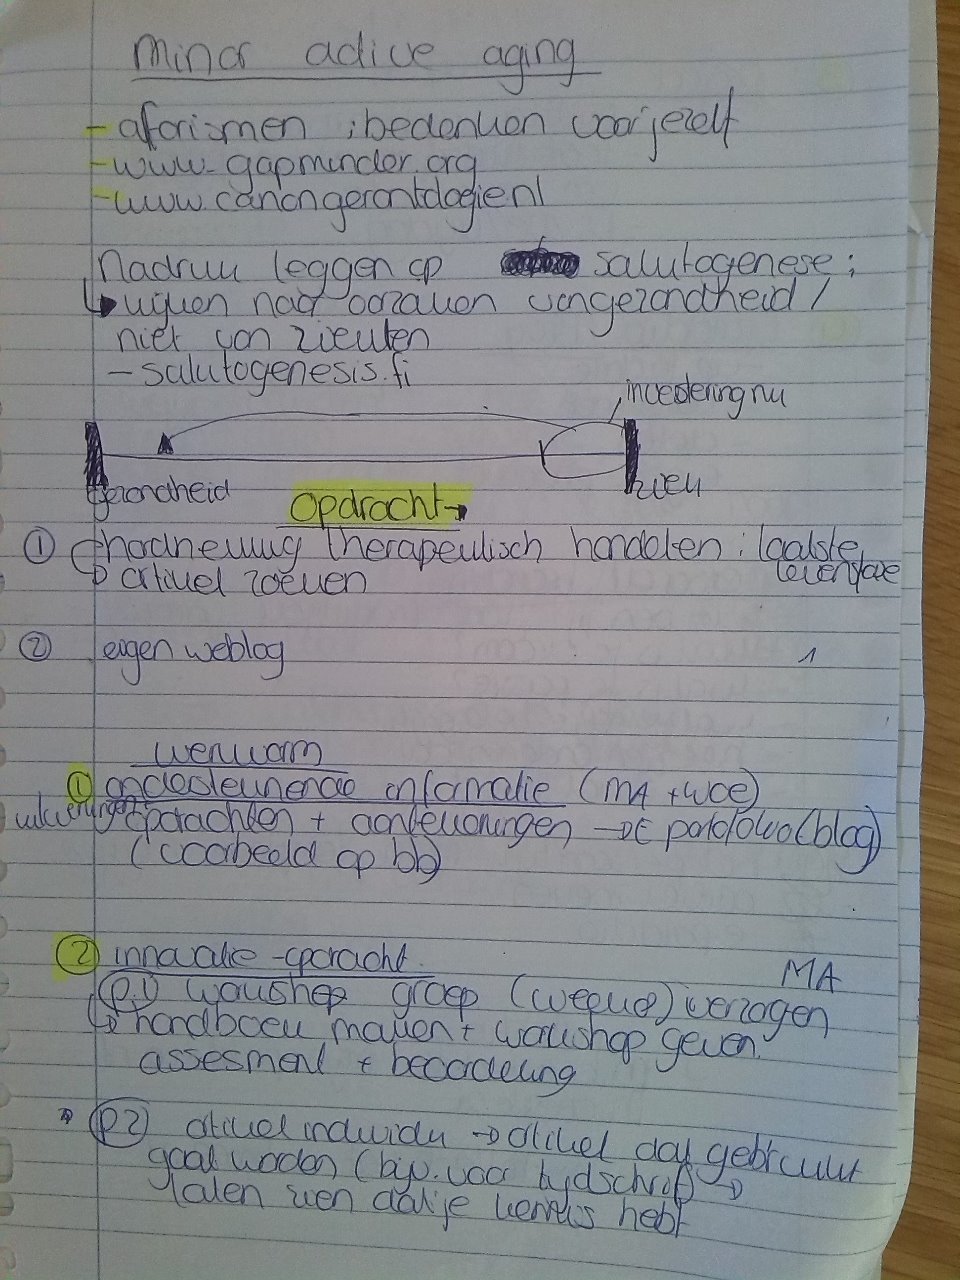 Minor active aging
- aforismen ; bedenken voor jezelf
- www.gapminder.org
- www.canongerontologie.nl
Nadruk leggen op salutogenese ;
↳ kijken naar oorzaken van gezondheid /
niet van ziekten
- salutogenesis.fi
investering nu
gezondheid
ziek
Opdracht →
① therapeutisch handelen : laatste
levensfase
↳ artikel zoeken
② eigen weblog
1
werkvorm
① ondersteunende informatie (MA + woe)
opdrachten + aantekeningen → E portfolio (blog)
(voorbeeld op bb)
② innovatie - opdracht
MA
P.1) workshop groep (week 8) verzorgen
↳ handboek maken + workshop geven.
assesment + beoordeling
P2) artikel individu → artikel dat gebruikt
gaat worden (bijv. voor tijdschrift) →
laten zien dat je kennis hebt